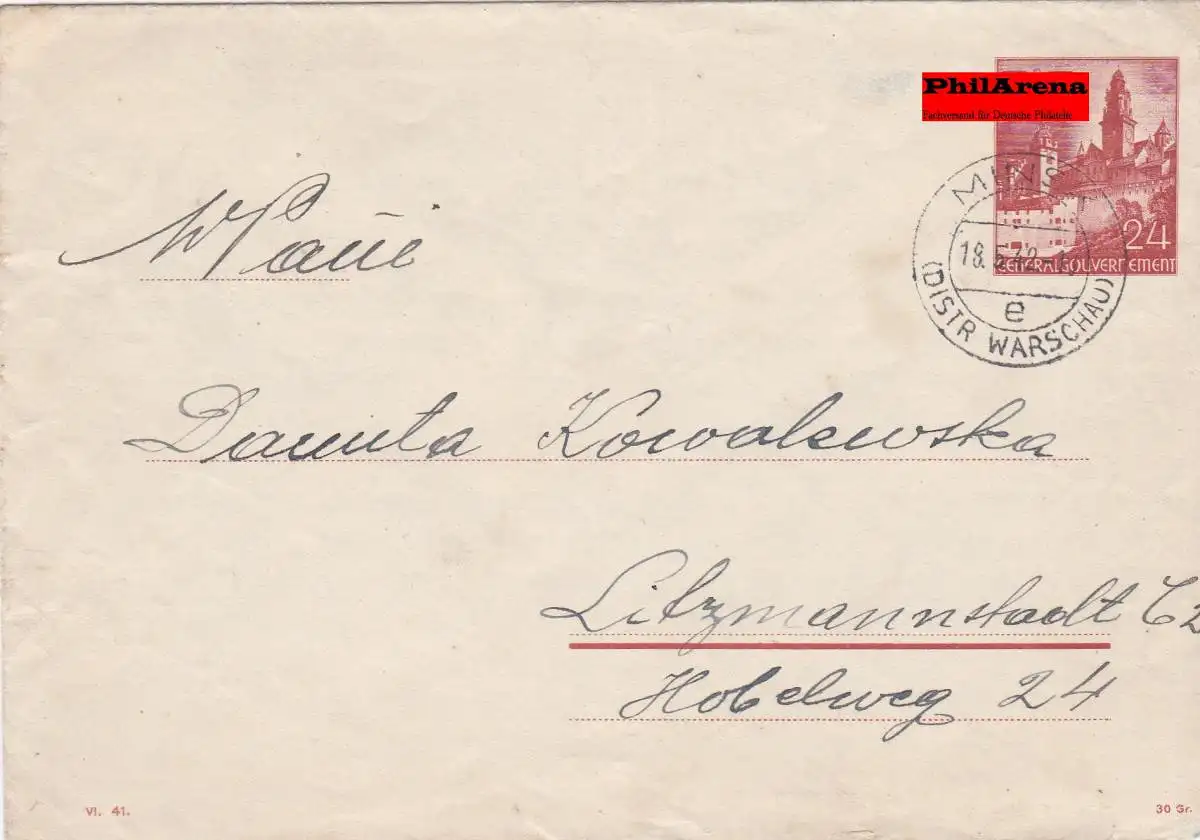 PhilArena
Fachversand für Deutsche Philatelie
24
GENERALGOUVERNEMENT
MINSK
18.5.42-
e
(DISTR WARSCHAU)
WPani
Danuta Kowalewska
Litzmannstadt C2
Hobelweg 24
VI. 41.
30 Gr.